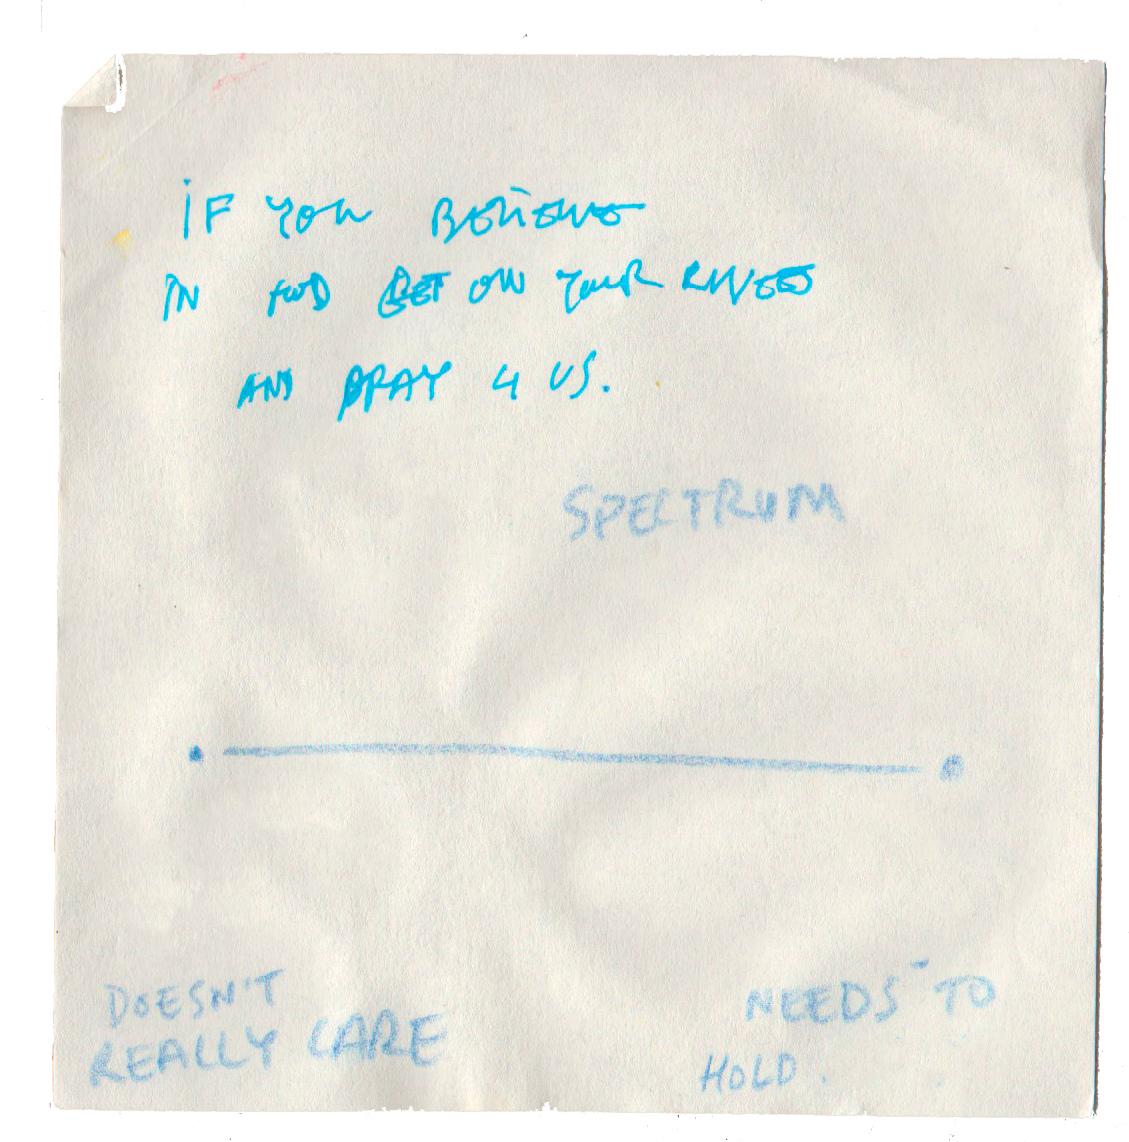 IF YOU BELIEVE
IN GOD GET ON YOUR KNEES
AND PRAY 4 US.
SPECTRUM
DOESN'T
REALLY CARE
NEEDS TO
HOLD.